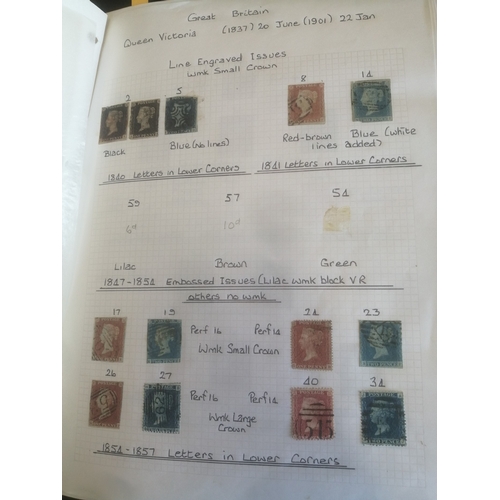 Great Britain
Queen Victoria (1837) 20 June (1901) 22 Jan
Line Engraved Issues
Wmk Small Crown
2 5 8 14
Black Blue (No lines) Red-brown Blue (White lines added)
1840 Letters in Lower Corners 1841 Letters in Lower Corners
59 57 54
6d 10d
Lilac Brown Green
1847-1854 Embossed Issues (Lilac wmk block V R
others no wmk
17 19 Perf 16 Perf 14 24 23
Wmk Small Crown
26 27 Perf 16 Perf 14 40 34
Wmk Large Crown
1854-1857 Letters in Lower Corners